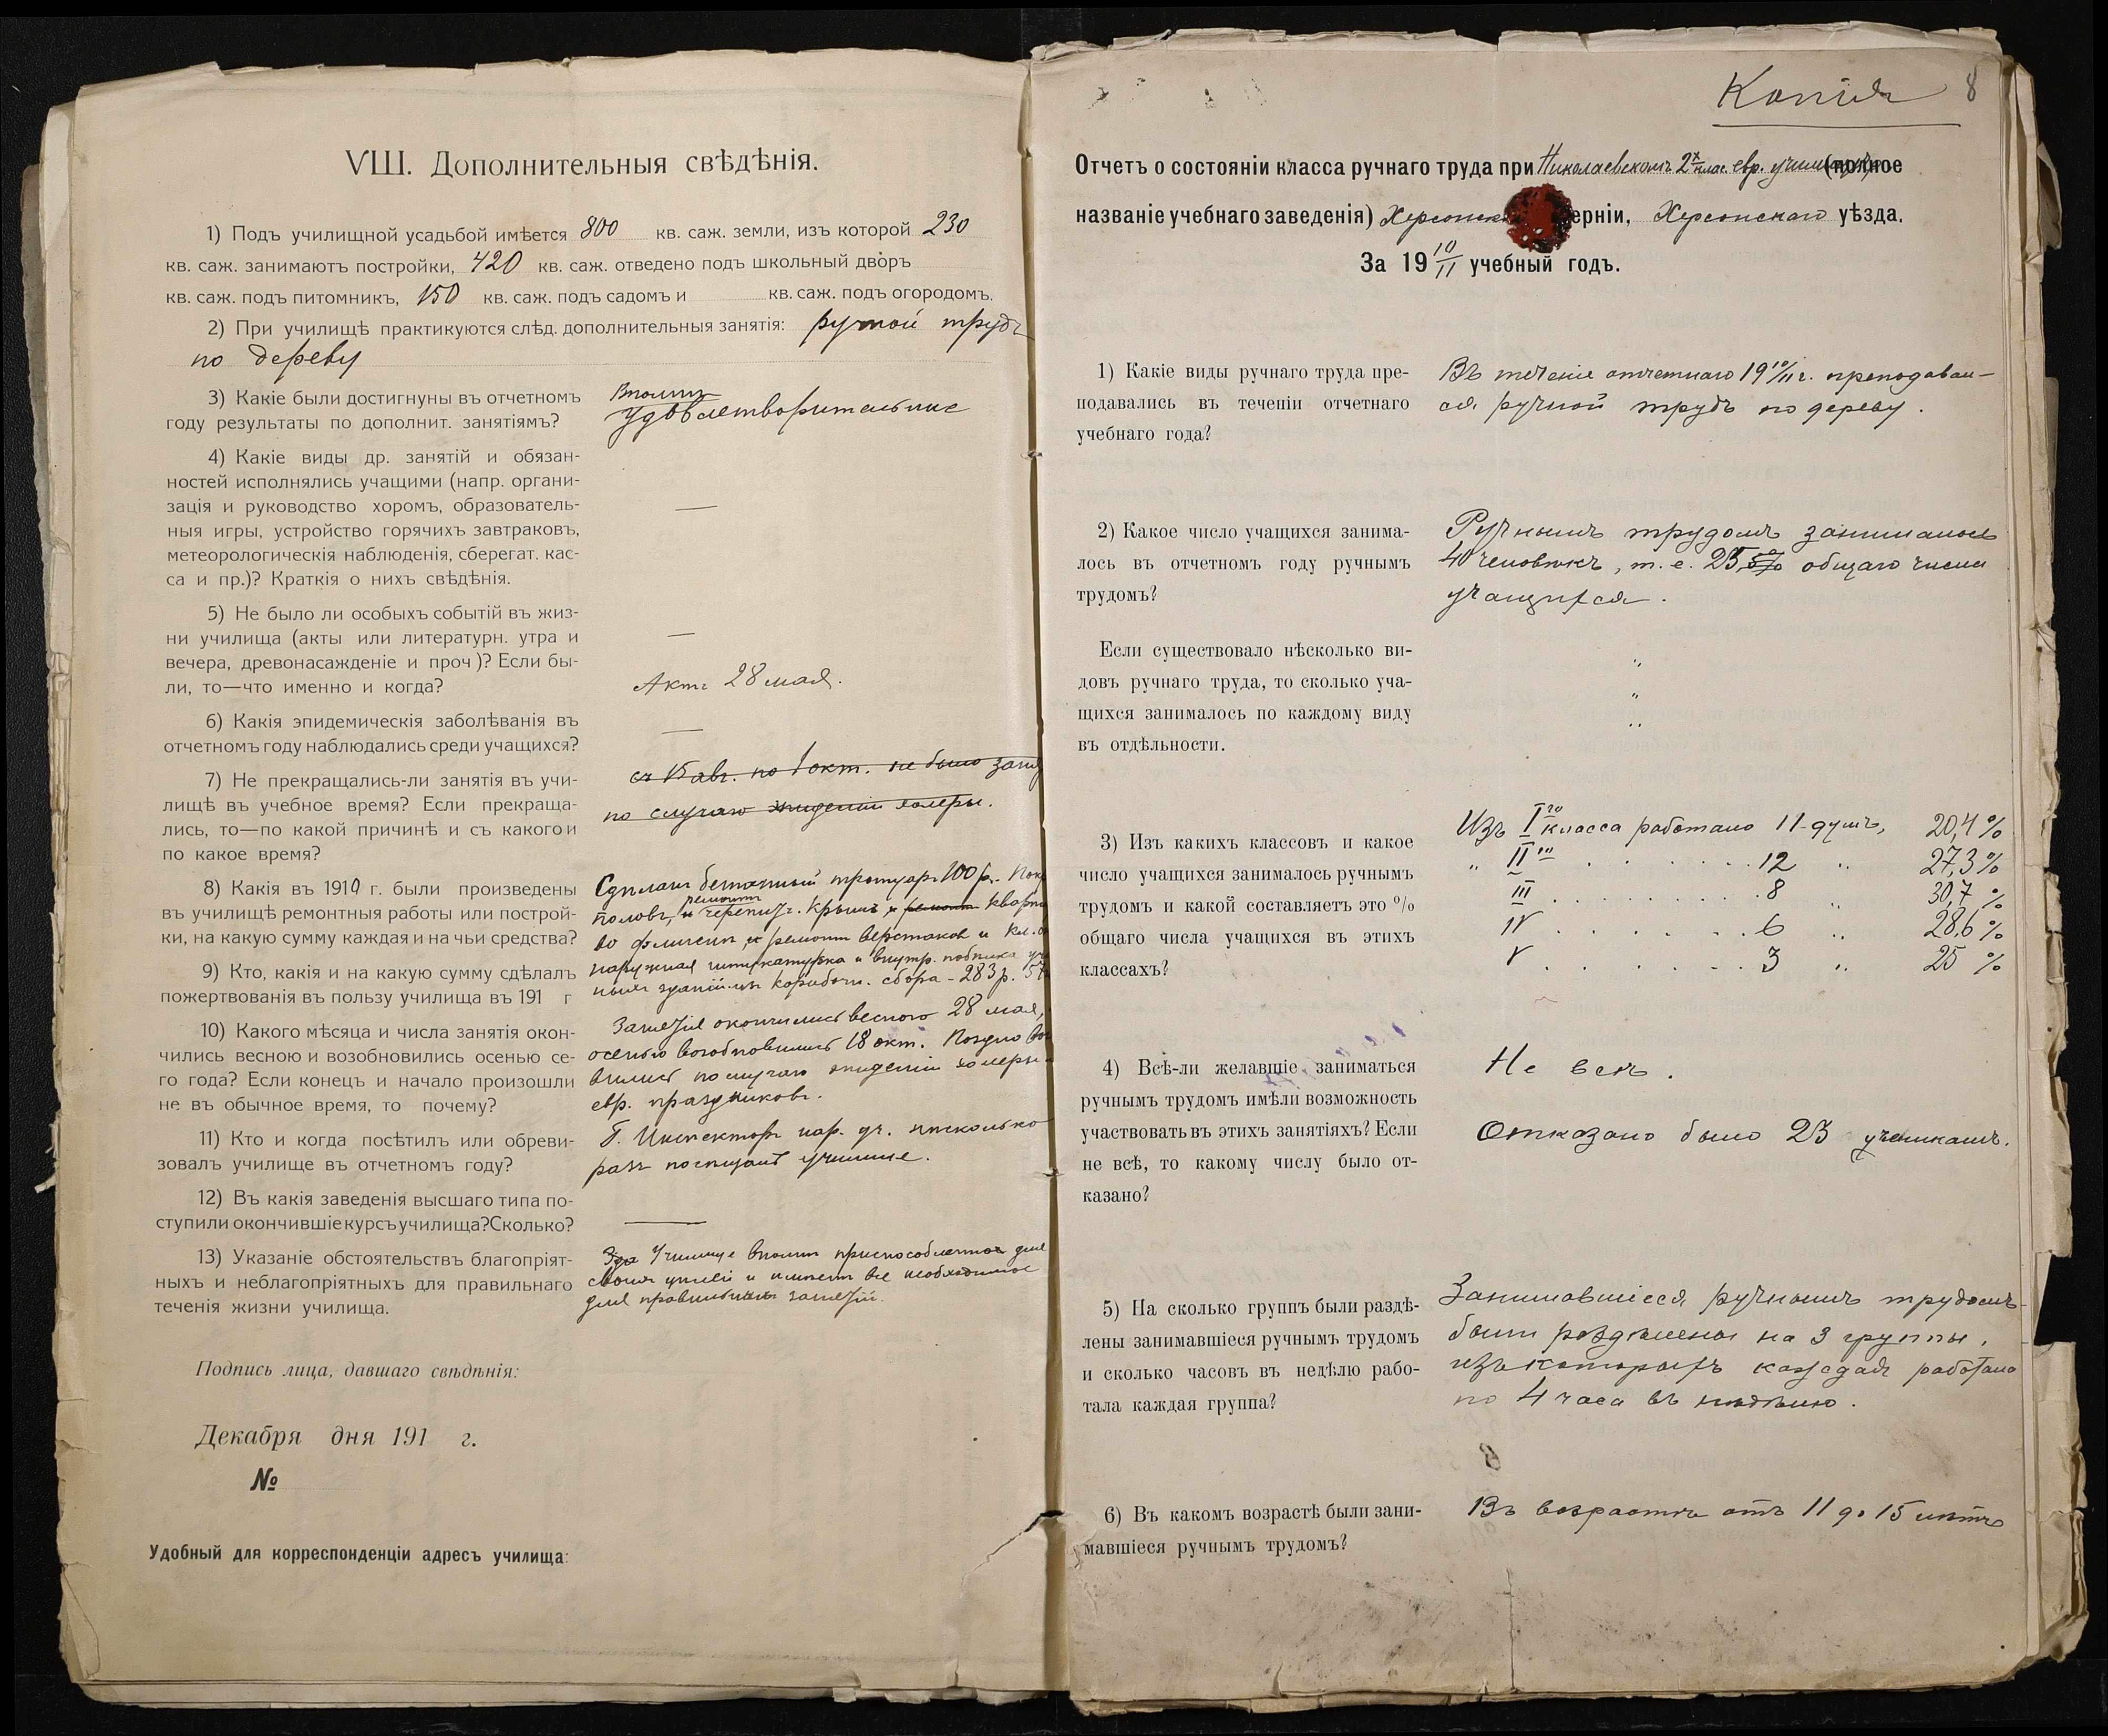 VШ. Дополнительныя свѣдѣнія.
1) Подъ училищной усадьбой имѣется 800 кв. саж. земли, изъ которой 230
кв. саж. занимаютъ постройки, 420 кв. саж. отведено подъ школьный дворъ
кв. саж. подъ питомникъ, 150 кв. саж. подъ садомъ и кв. саж. подъ огородомъ.
2) При училищѣ практикуются слѣд. дополнительныя занятія: ручной трудъ
по дереву
3) Какіе были достигнуны въ отчетномъ
году результаты по дополнит. занятіямъ?
Вполнѣ
удовлетворительные
4) Какіе виды др. занятій и обязан-
ностей исполнялись учащими (напр. органи-
зація и руководство хоромъ, образователь-
ныя игры, устройство горячихъ завтраковъ,
метеорологическія наблюденія, сберегат. кас-
са и пр.)? Краткія о нихъ свѣдѣнія.
—
5) Не было ли особыхъ событій въ жиз-
ни училища (акты или литературн. утра и
вечера, древонасажденіе и проч )? Если бы-
ли, то—что именно и когда?
—
Актъ 28 мая.
6) Какія эпидемическія заболѣванія въ
отчетномъ году наблюдались среди учащихся?
—
7) Не прекращались-ли занятія въ учи-
лищѣ въ учебное время? Если прекраща-
лись, то—по какой причинѣ и съ какого и
по какое время?
съ 15 авг. по 1 окт. не было заня
по случаю эпидеміи холеры.
8) Какія въ 1910 г. были произведены
въ училищѣ ремонтныя работы или построй-
ки, на какую сумму каждая и на чьи средства?
Сдѣланъ бетонный тротуаръ 100 р.
половъ, ремонтъ черепич. крышъ и ремонтъ кварти
во флигелѣ и ремонтъ верстаковъ и кл.
9) Кто, какія и на какую сумму сдѣлалъ
пожертвованія въ пользу училища въ 191 г
наружная штукатурка и внутр. побѣлка
зданій изъ коробочн. сбора - 283 р. 57
10) Какого мѣсяца и числа занятія окон-
чились весною и возобновились осенью се-
го года? Если конецъ и начало произошли
не въ обычное время, то почему?
Занятія окончились весною 28 мая,
осенью возобновились 18 окт. Поздно воз
вились по случаю эпидеміи холеры
евр. праздниковъ.
11) Кто и когда посѣтилъ или обреви-
зовалъ училище въ отчетномъ году?
Г. Инспекторъ нар. уч. нѣсколько
разъ посѣщалъ училище.
12) Въ какія заведенія высшаго типа по-
ступили окончившіе курсъ училища? Сколько?
—
13) Указаніе обстоятельствъ благопріят-
ныхъ и неблагопріятныхъ для правильнаго
теченія жизни училища.
Училище вполнѣ приспособленное для
своихъ цѣлей и имѣетъ все необходимое
для правильныхъ занятій.
Подпись лица, давшаго свѣдѣнія:
Декабря дня 191 г.
№
Удобный для корреспонденціи адресъ училища:
Копія 8
Отчетъ о состояніи класса ручнаго труда при Николаевскомъ 2х клас. евр. училищѣ (полное
названіе учебнаго заведенія) Херсонск ерніи, Херсонскаго уѣзда.
За 19 10/11 учебный годъ.
1) Какіе виды ручнаго труда пре-
подавались въ теченіи отчетнаго
учебнаго года?
Въ теченіе отчетнаго 19 10/11 г. преподавал-
ся ручной трудъ по дереву.
2) Какое число учащихся занима-
лось въ отчетномъ году ручнымъ
трудомъ?
Ручнымъ трудомъ занималось
40 человѣкъ, т. е. 25,5% общаго числа
учащихся.
Если существовало нѣсколько ви-
довъ ручнаго труда, то сколько уча-
щихся занималось по каждому виду
въ отдѣльности.
"
"
"
3) Изъ какихъ классовъ и какое
число учащихся занималось ручнымъ
трудомъ и какой составляетъ это %
общаго числа учащихся въ этихъ
классахъ?
Изъ Iго класса работало 11 душъ, 20,4 %
" II " . . . . . . 12 " 27,3 %
III . . . . . . . . 8 " 30,7 %
IV . . . . . . 6 " 28,6 %
V . . . . . . 3 " 25 %
4) Всѣ-ли желавшіе заниматься
ручнымъ трудомъ имѣли возможность
участвовать въ этихъ занятіяхъ? Если
не всѣ, то какому числу было от-
казано?
Не всѣ.
Отказано было 25 ученикамъ.
5) На сколько группъ были раздѣ-
лены занимавшіеся ручнымъ трудомъ
и сколько часовъ въ недѣлю рабо-
тала каждая группа?
Занимавшіеся ручнымъ трудомъ
были раздѣлены на 3 группы,
изъ которыхъ каждая работала
по 4 часа въ недѣлю.
6) Въ какомъ возрастѣ были зани-
мавшіеся ручнымъ трудомъ?
Въ возрастѣ отъ 11 до 15 лѣтъ